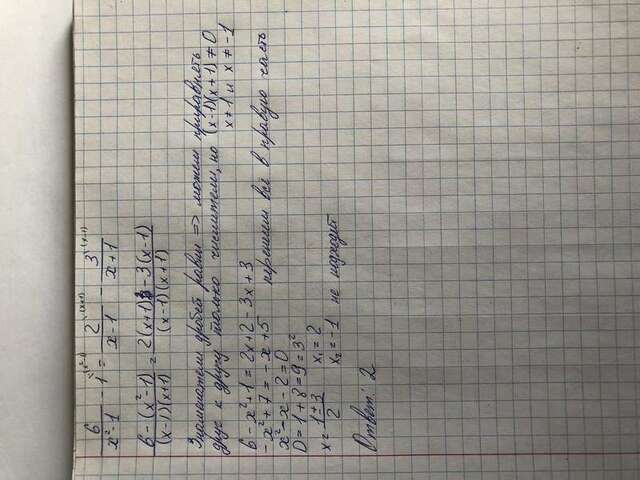 6/(x²-1) - 1^\(x²-1) = 2^\(x+1)/(x-1) - 3^\(x-1)/(x+1)
(6-(x²-1))/((x-1)(x+1)) = (2(x+1)-3(x-1))/((x-1)(x+1))
Знаменатели дробей равны => можем приравнять
друг к другу только числители, но (x-1)(x+1) ≠ 0
x ≠ 1 и x ≠ -1
6 - x² + 1 = 2x + 2 - 3x + 3
-x² + 7 = -x + 5 перенесем всё в правую часть
x² - x - 2 = 0
D = 1 + 8 = 9 = 3²
x = (1±3)/2 x₁ = 2
x₂ = -1 не подходит
Ответ: 2